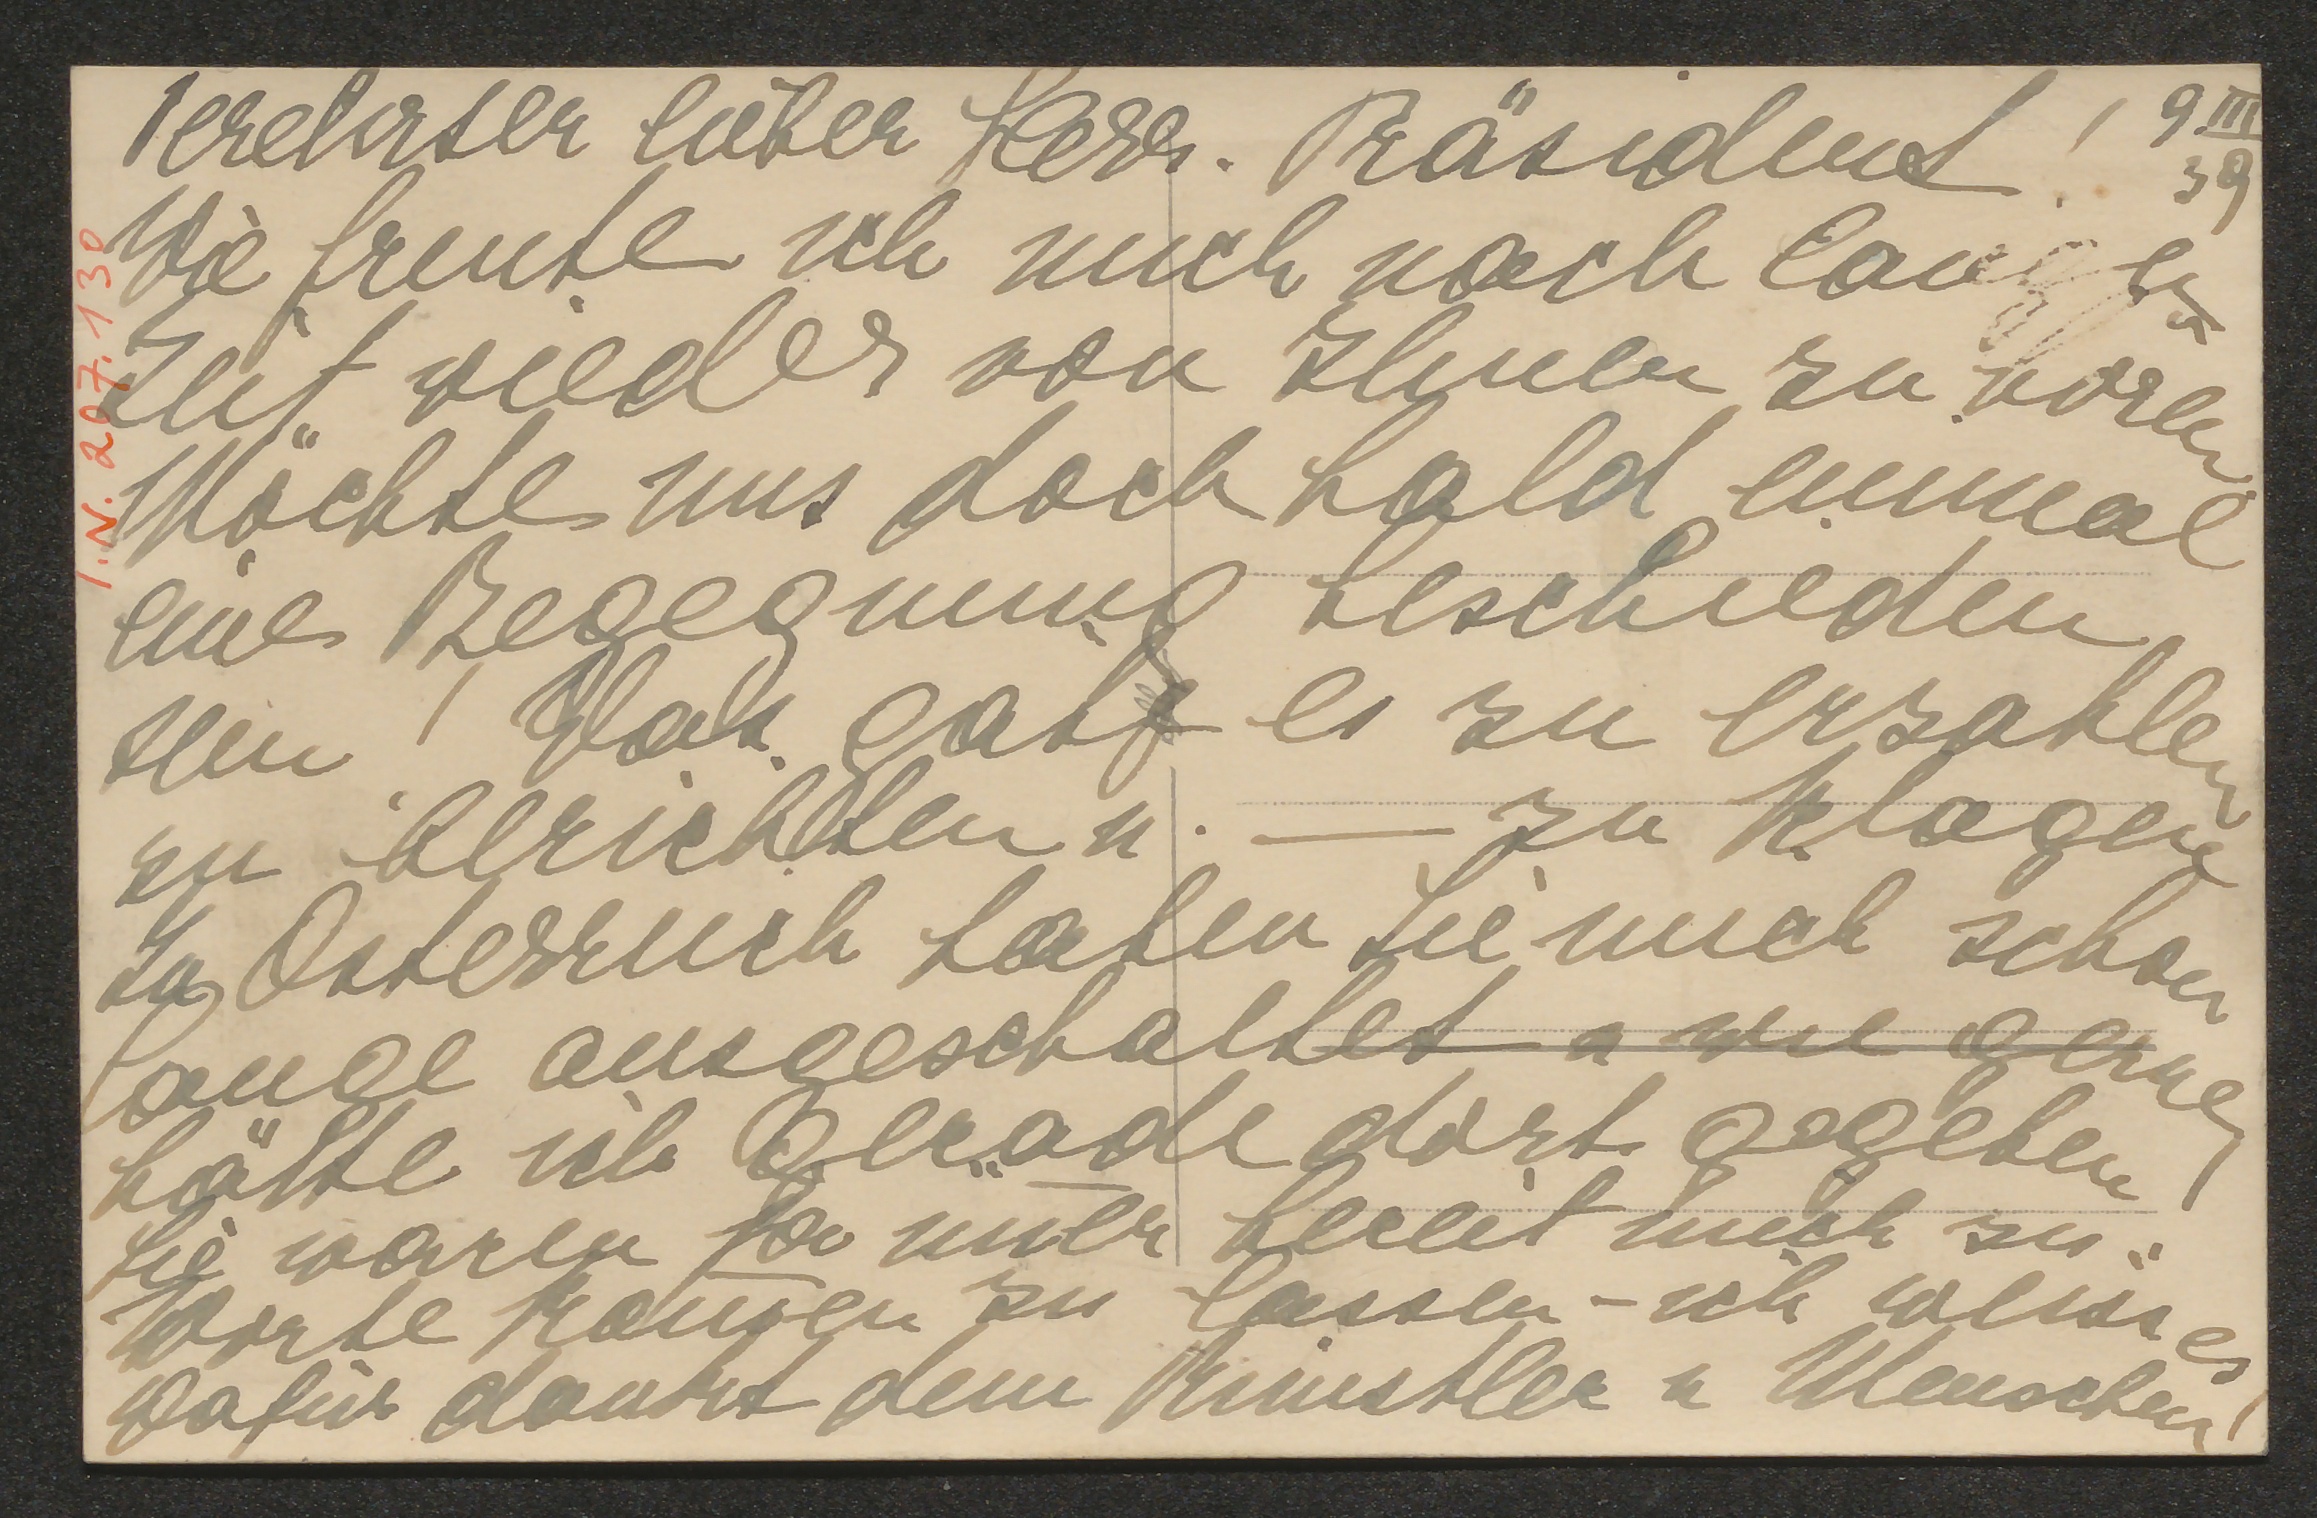 Verehrter lieber Herr. Präsident! 9 III 39
Wie freute ich mich nach langer
Zeit wieder von Ihnen zu hören
Möchte uns doch bald einmal
eine Begegnung beschieden
sein! Was gäbe es zu erzählen
zu berichten u. — zu klagen
In Österreich haben Sie mich schon
lange ausgeschaltet u wie gerne
hätte ich gerade dort gegeben!
Sie waren ja immer bereit mich zu
Worte kommen zu lassen – ich weiss es
Dafür dankt dem Künstler u Menschen!
I.N. 207.130